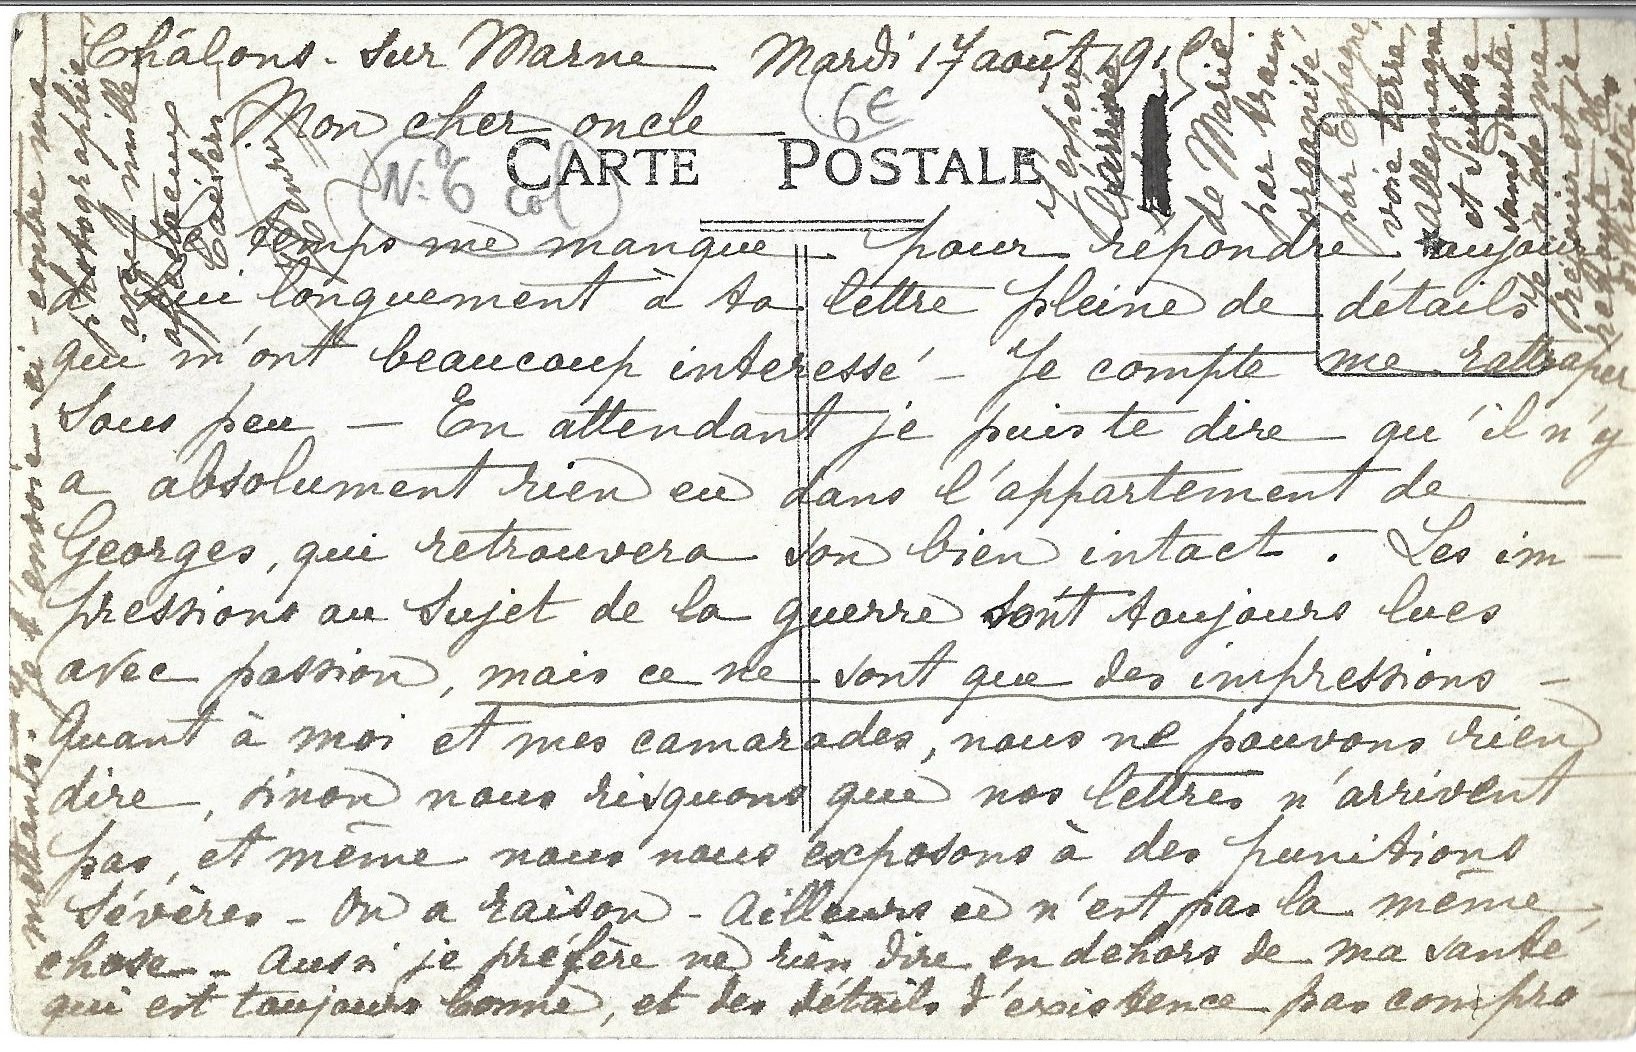 Châlons-sur Marne Mardi 17 août 1915
Mon cher oncle
6€
CARTE POSTALE
N° 6 col
Le temps me manque pour répondre aujour
d'hui longuement à ta lettre pleine de détails
qui m'ont beaucoup interessé - Je compte me rattraper
sous peu - En attendant je puis te dire qu'il n'y
a absolument rien eu dans l'appartement de
Georges, qui retrouvera son bien intact. Les im-
pressions au sujet de la guerre sont toujours lues
avec passion, mais ce ne sont que des impressions -
Quant à moi et mes camarades, nous ne pouvons rien
dire, sinon nous risquons que nos lettres n'arrivent
pas, et même nous nous exposons à des punitions
sévères - On a raison - Ailleurs ce n'est pas la même
chose - Aussi je préfère ne rien dire en dehors de ma santé,
qui est toujours bonne, et des détails d'existence pas compro-
mettants. Je t'envoie ci-contre ma
photographie
avec mille
affectueux
baisers
J'espère
l'arrivée
de Marie
par train
organisé,
par Espagne,
voie terre,
allemagne
et Suisse
sans doute.
Je n'ose me
réjouir et je